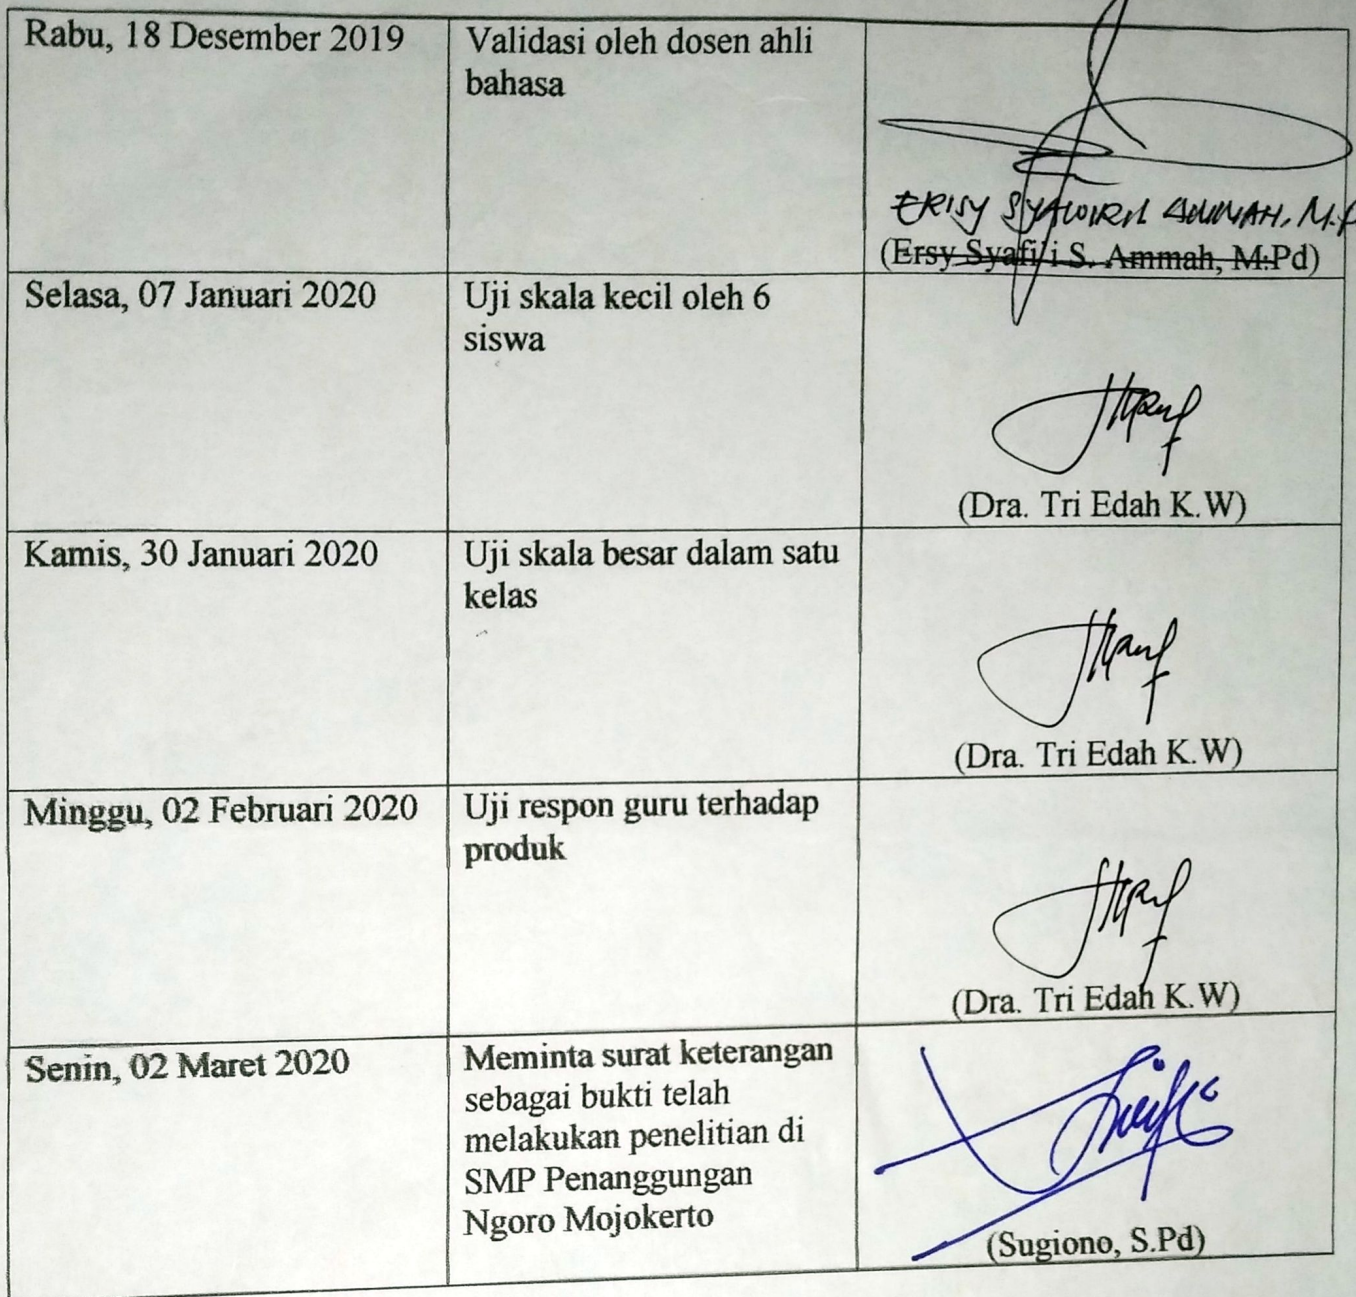 Rabu, 18 Desember 2019
Validasi oleh dosen ahli
bahasa
(Ersy Syafi'i S. Ammah, M.Pd)
Selasa, 07 Januari 2020
Uji skala kecil oleh 6
siswa
(Dra. Tri Edah K.W)
Kamis, 30 Januari 2020
Uji skala besar dalam satu
kelas
(Dra. Tri Edah K.W)
Minggu, 02 Februari 2020
Uji respon guru terhadap
produk
(Dra. Tri Edah K.W)
Senin, 02 Maret 2020
Meminta surat keterangan
sebagai bukti telah
melakukan penelitian di
SMP Penanggungan
Ngoro Mojokerto
(Sugiono, S.Pd)